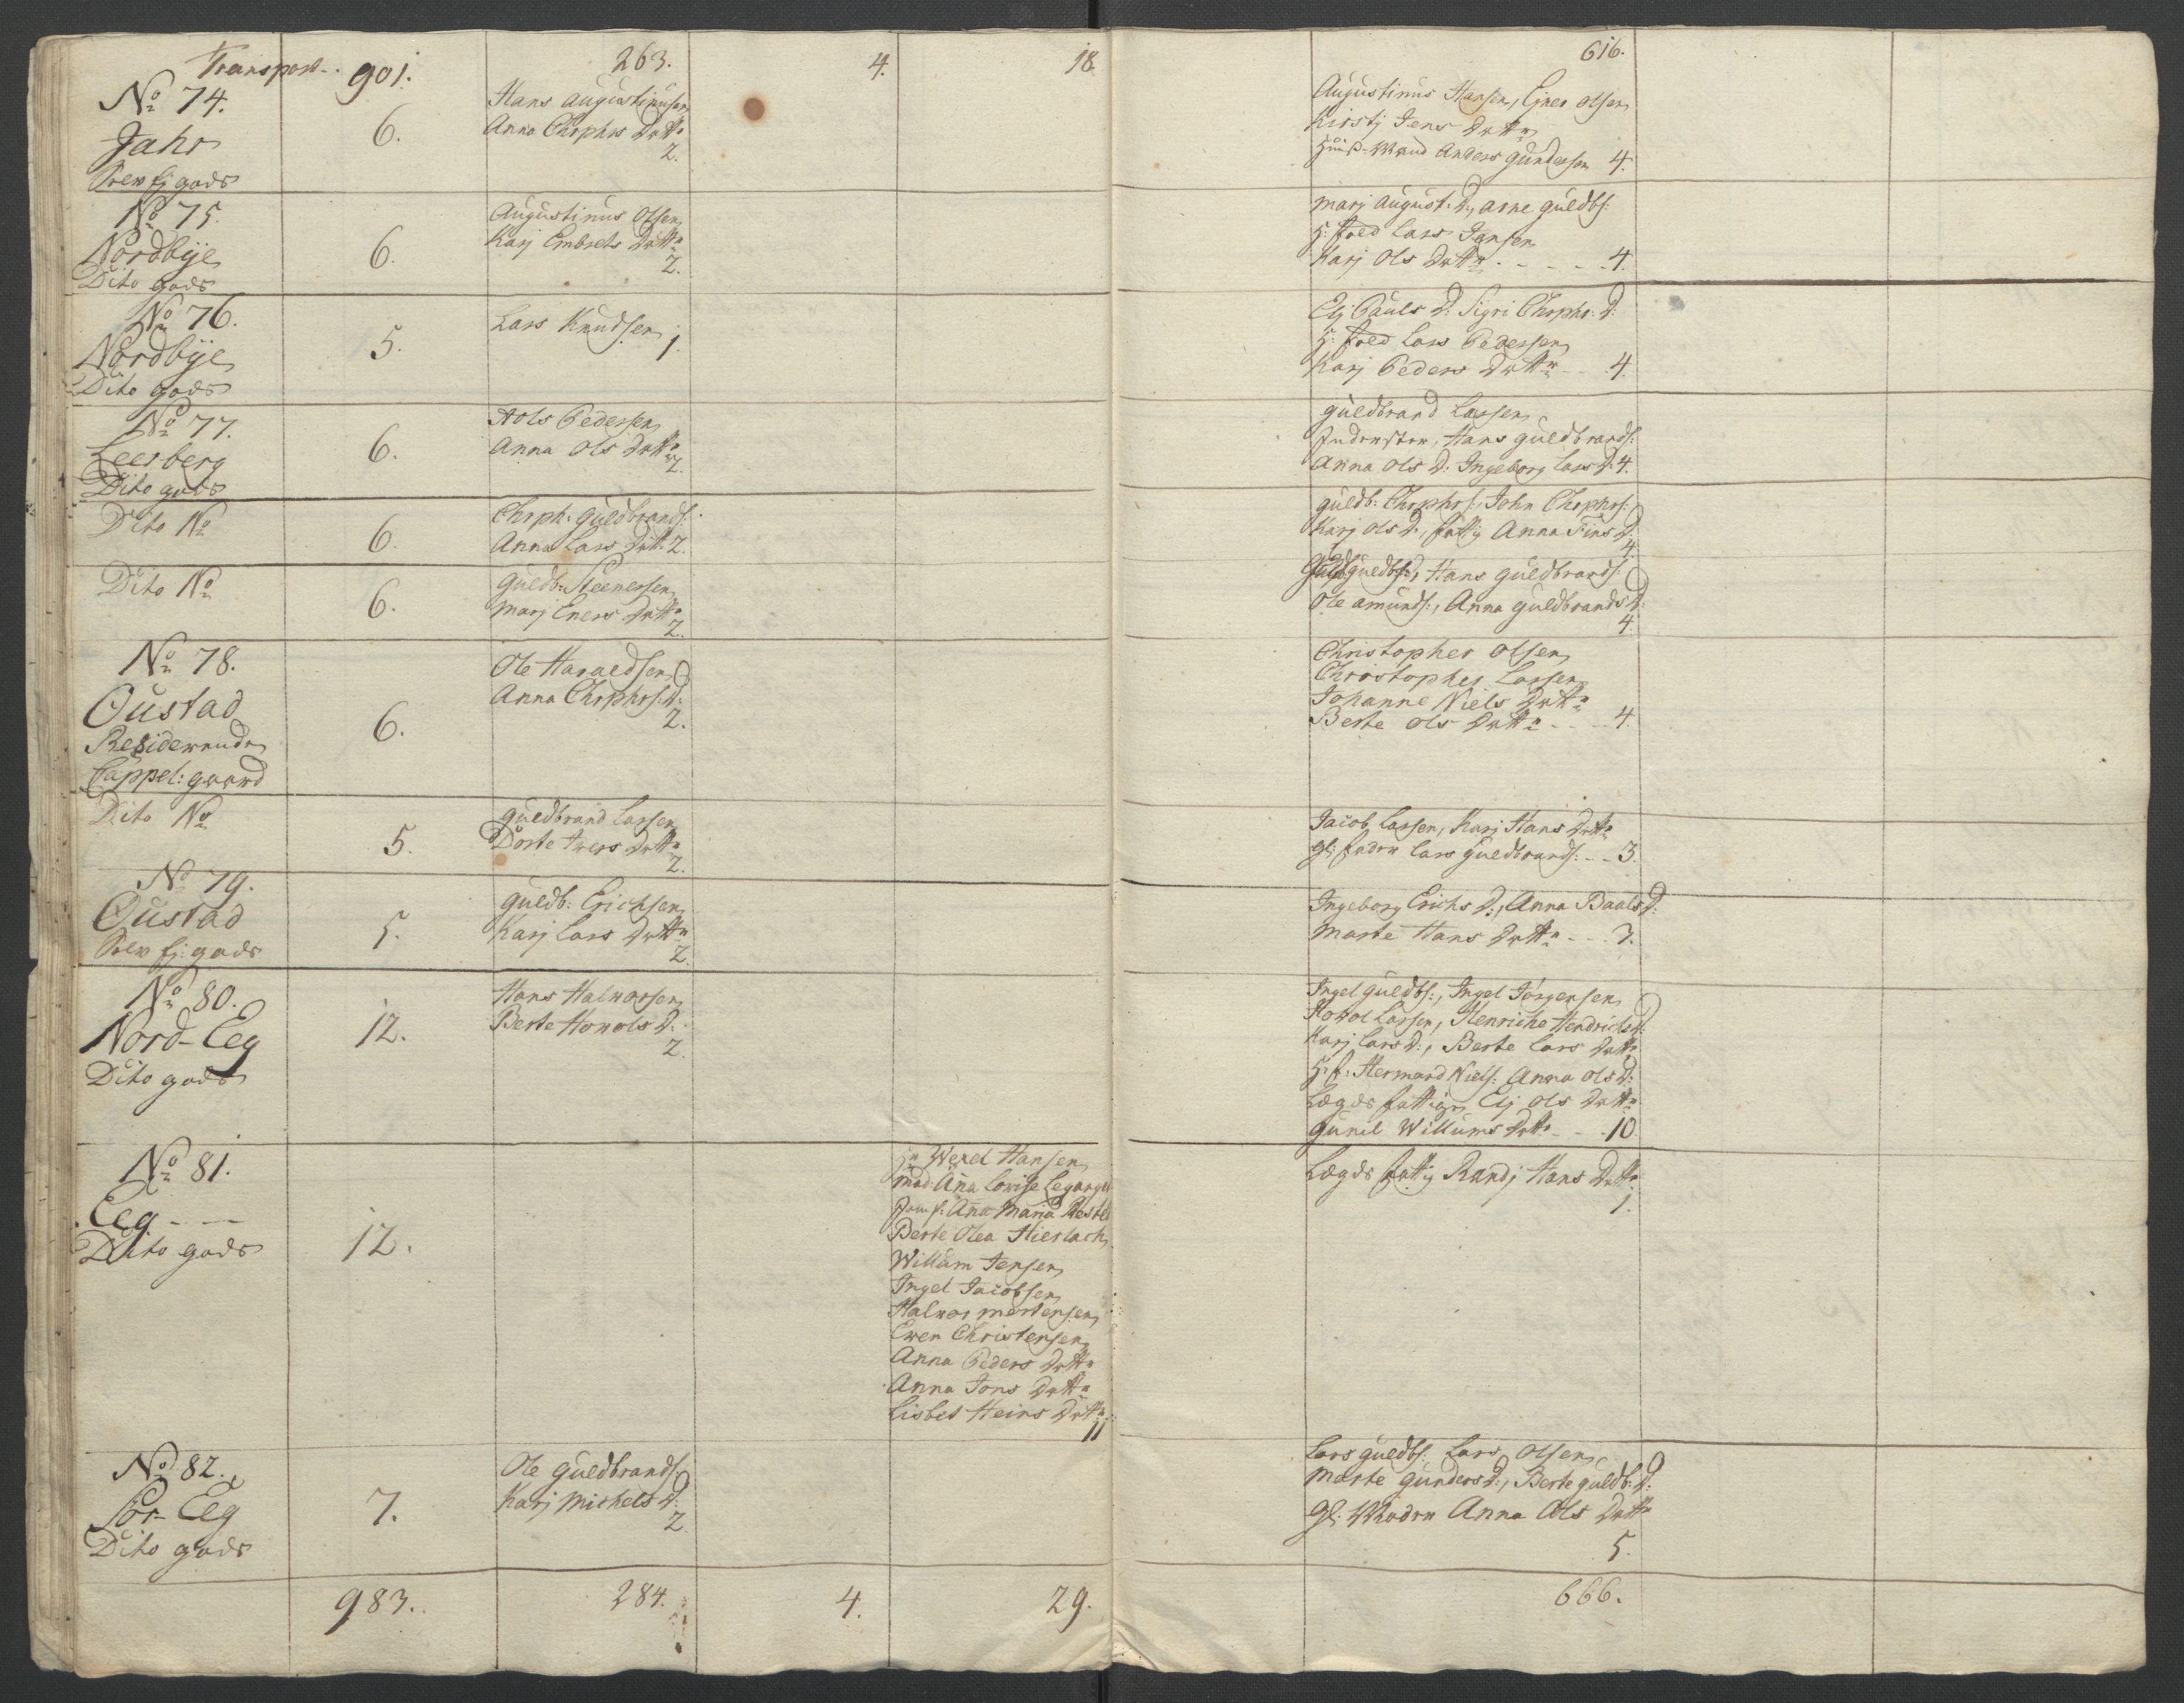 Transport. 901. 263. 4. 18. 616.
No 74.
Jahr
gods
6.
Hans Augustinusen
Anna Chrphrs Dattr
2.
Augustinus Hansen, Ejner Olsen
Kirstj Jens Dattr
Huus-Mand Anders Gundersen 4.
No 75.
Nordbÿe
Dito gods
6.
Augustinus Olsen
Karj Embrets Dattr
2.
Marj August: D:, Arne Guldbs:
H: Foed Lars Jensen
Karj Ols Dattr - - - - 4.
No 76.
Nordbÿe
Dito gods
5.
Lars Knudsen
1.
Elj Pauls D: Sigri Chrphr: D:
H: Foed Lars Pedersen
Karj Peders Dattr - - 4.
No 77.
Leerberg
Dito gods
6.
Ols Pedersen
Anna Ols Dattr
2.
Guldbrand Larsen
Hans Guldbrands:
Anna Ols D: Ingeborg Lars D: 4.
Dito No
6.
Chrph: Guldbrands:
Anna Lars Datt: 2.
Guldb: Chrphrs:, John Chrphrs:
Karj Ols D:, fattig Anna Fins D:
4.
Dito No
6.
Guldb: Steenersen
Marj Eners Dattr
2.
Guldbs:, Hans Guldbrands:
Ole Amunds:, Anna Guldbrands D:
4.
No 78.
Oustad
Residerende
Cappel: gaard
6.
Ole Haraldsen
Anna Chrphrs: D:
2.
Christopher Olsen
Christopher Larsen
Johanne Niels Dattr
Berte Ols Dattr - - - 4.
Dito No
5.
Guldbrand Larsen
Dorte Ivers Dattr
2.
Jacob Larsen, Karj Hans Dattr
Gl: Fader Lars Guldbrands: - - 3.
No 79.
Oustad
gods
5.
Guldb: Erichsen
Karj Lars Dattr
2.
Ingeborg Erichs D:, Anna Baals D:
Marte Hans Dattr - - - 3.
No 80.
Nord-Eeg
Dito gods
12.
Hans Halvorsen
Berte Hovols D:
2.
Ingel Guldbs:, Ingel Jørgensen
Hovol Larsen, Henriche Hendrichs D:
Karj Lars D:, Berte Lars Dattr
H: f: Hermand Niels: Anna Ols D:
Lægds fattige Elj Ols Dattr
Gunil Willums Dattr - - - 10
No 81.
Eeg - -
Dito gods
12.
Hr Wexel Hansen
Mad: Ana Lovise
Jomf: Ana Maria
Berte Olea Hierlach
Willum Jensen
Ingel Jacobsen
Halvor Mortensen
Even Christensen
Anna Peders Dattr
Anna Jons Dattr
Lisbet Heins Dattr
11
Lægds fattig Randj Hans Dattr
1.
No 82.
Sør-Eeg
Dito gods
7.
Ole Guldbrands:
Karj Michels D:
2
Lars Guldbs: Lars Olsen
Marte Gunders D:, Berte Guldb: D:
Gl: Moder Anna Ols Dattr
5.
983. 284. 4. 29. 666.